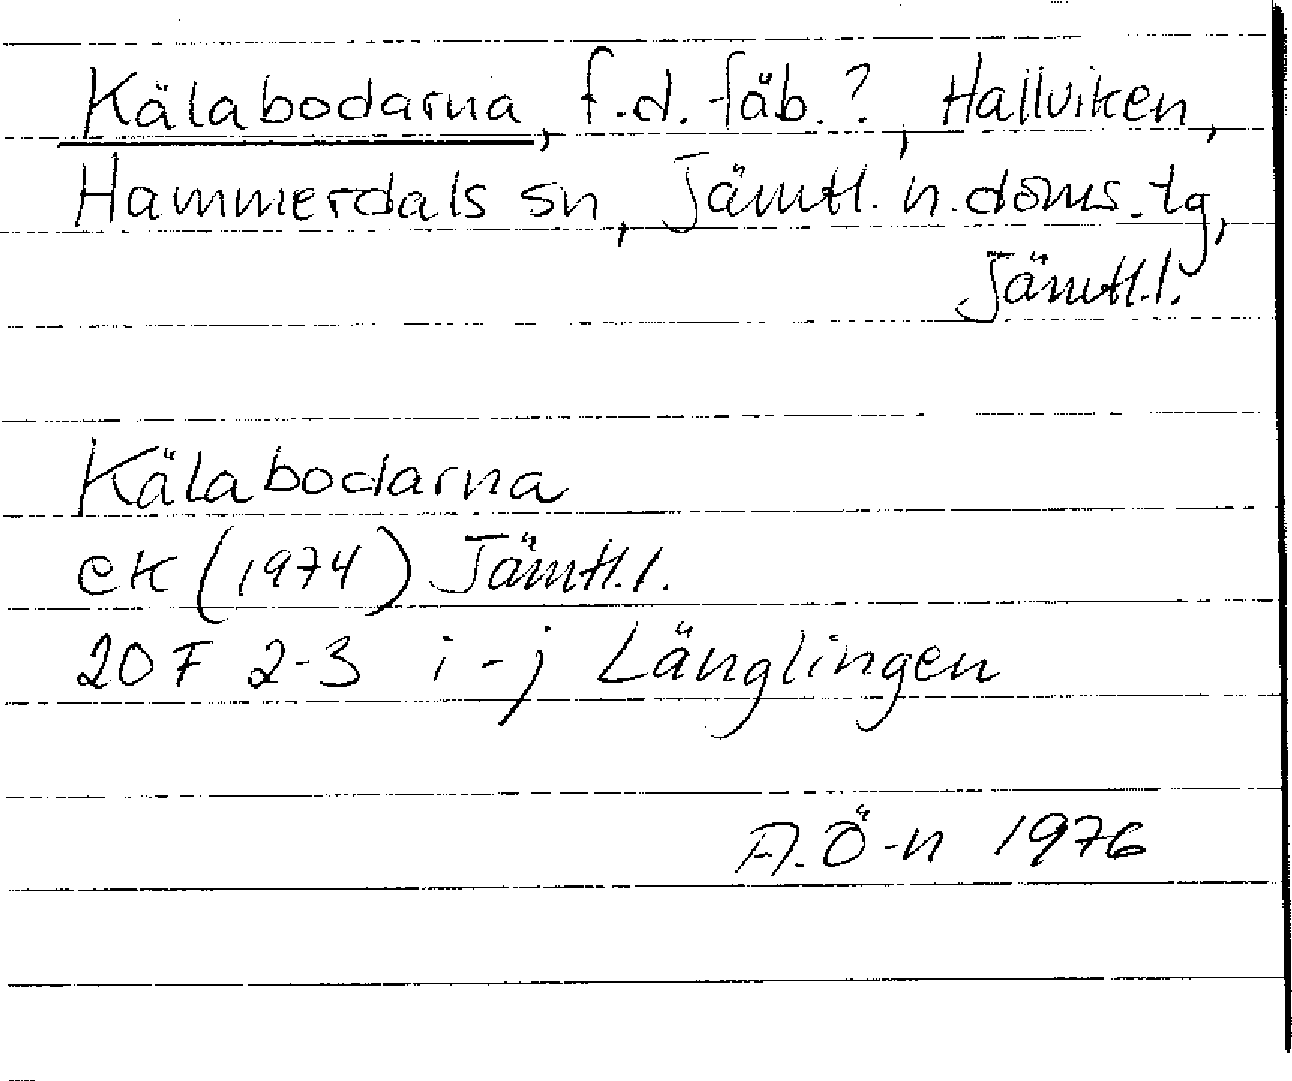 Kälabodarna, f.d. fäb.?, Hallviken,
Hammerdals sn, Jämtl. n. doms. tg,
Jämtl.l.
Kälabodarna
ek (1974) Jämtl.l.
20F 2-3 i-j Länglingen
A.Ö-n 1976